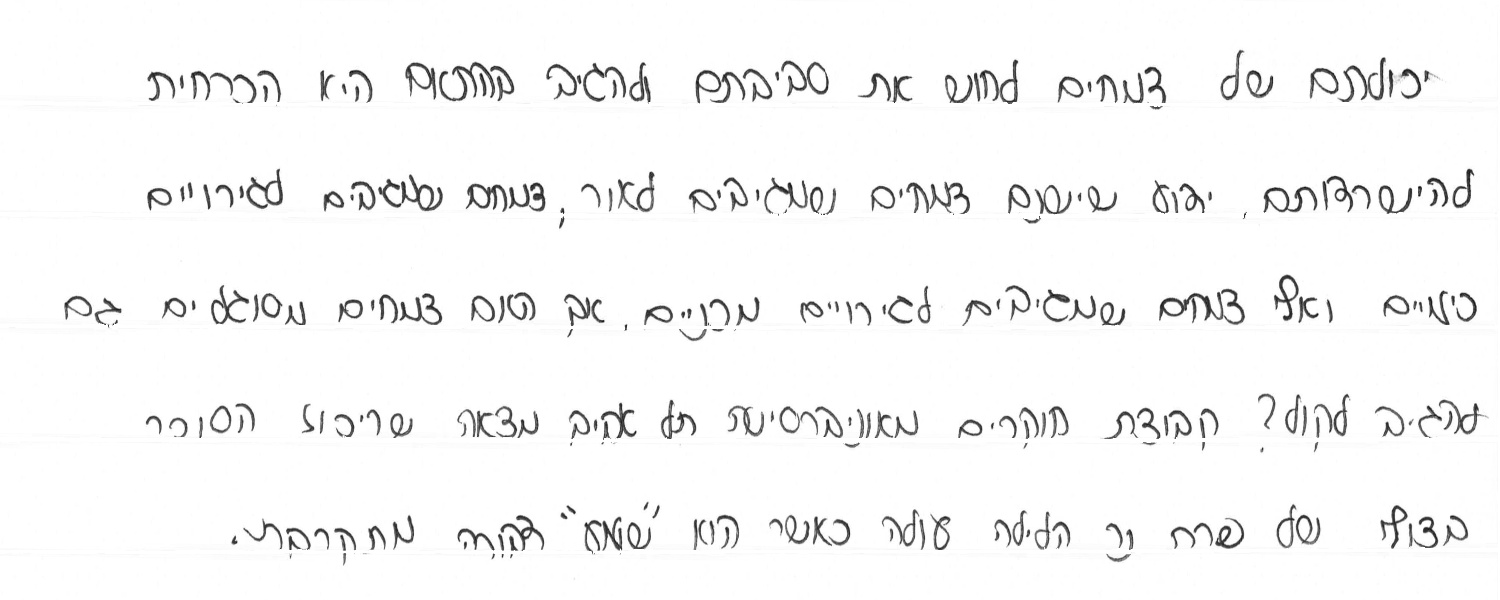 יכולתם של צמחים לחוש את סביבתם ולהגיב בהתאם היא הכרחית
להישרדותם. ידוע שישנם צמחים שמגיבים לאור, צמחים שמגיבים לגירויים
כימיים ואף צמחים שמגיבים לגירויים מכניים. אך האם צמחים מסוגלים גם
להגיב לקול? קבוצת חוקרים מאוניברסיטת תל אביב מצאה שריכוז הסוכר
בצוף של פרח נר הלילה עולה כאשר הוא "שומע" דבורה מתקרבת.